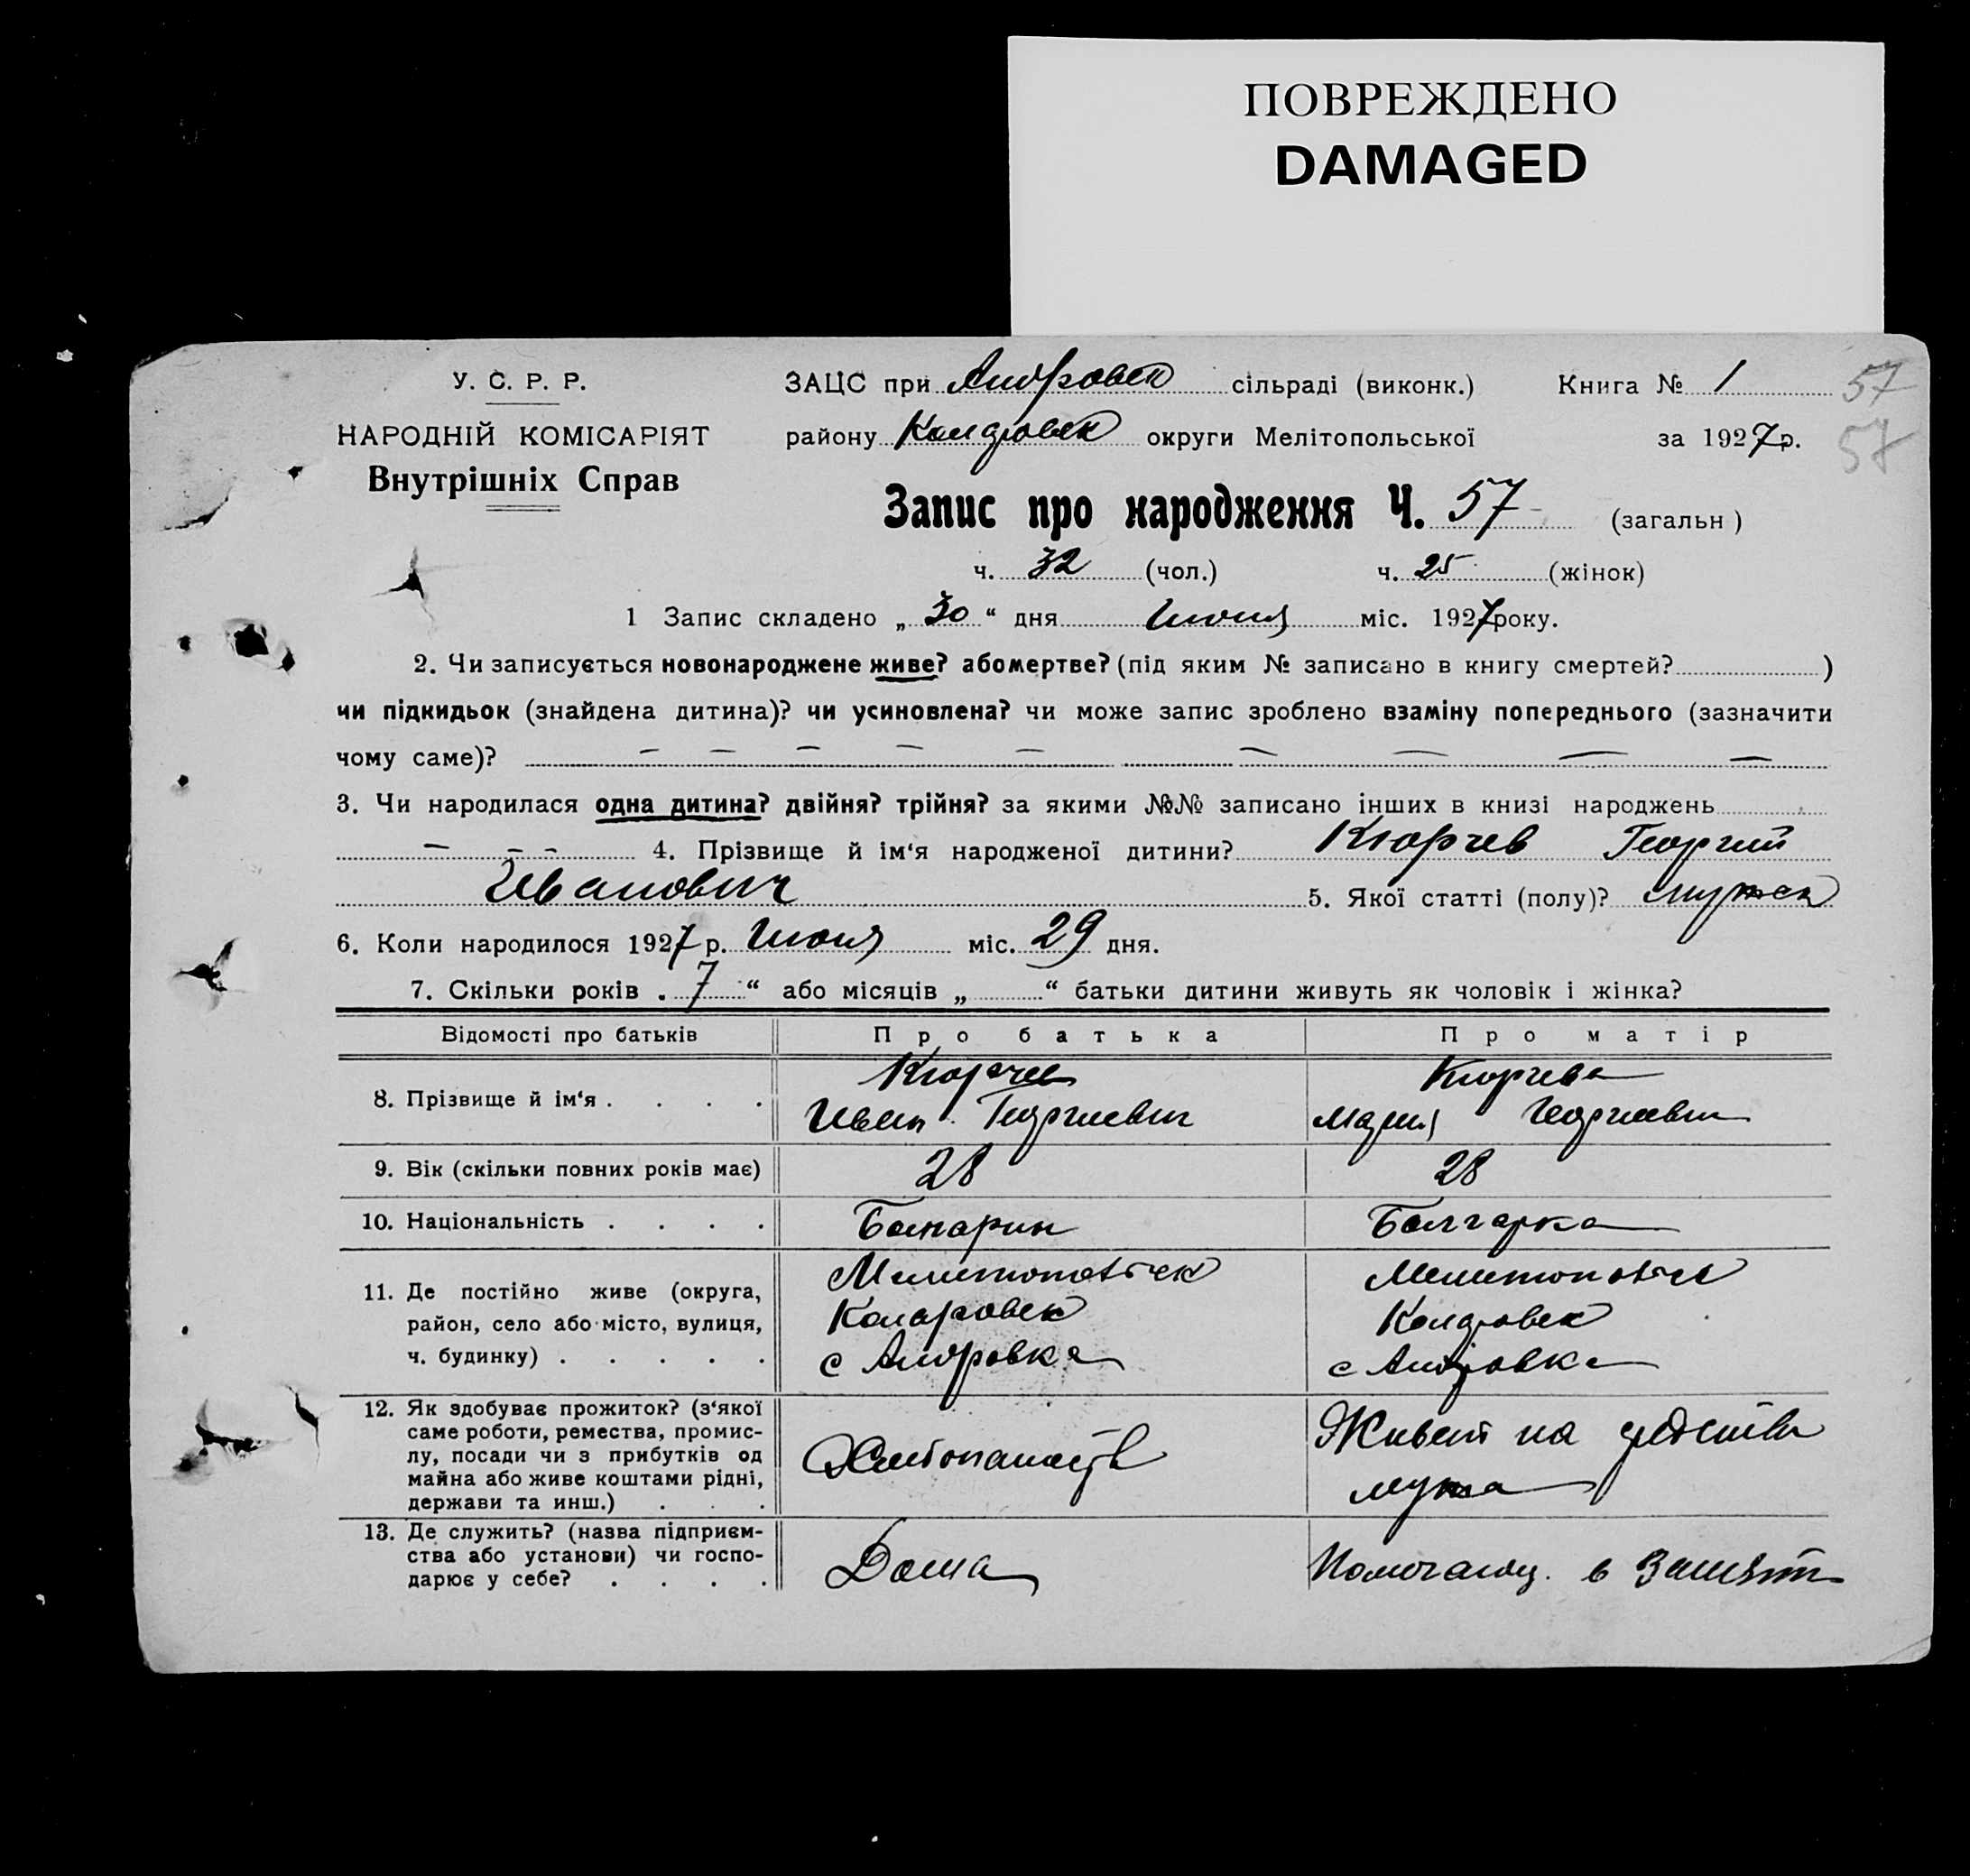 ПОВРЕЖДЕНО
DAMAGED
У. С. Р. Р.
НАРОДНІЙ КОМІСАРІЯТ
Внутрішніх Справ
ЗАЦС при Андровск сільраді (виконк.) Книга № 1 57
району Коларовск округи Мелітопольської за 1927 р. 57
Запис про народження Ч. 57 (загальн)
ч. 32 (чол.) ч. 25 (жінок)
1 Запис складено „30“ дня Июня міс. 1927 року.
2. Чи записується новонароджене живе? або мертве? (під яким № записано в книгу смертей? )
чи підкидьок (знайдена дитина)? чи усиновлена? чи може запис зроблено взаміну попереднього (зазначити
чому саме)? — — — — — — — — —
3. Чи народилася одна дитина? двійня? трійня? за якими №№ записано інших в книзі народжень
— — — 4. Прізвище й ім‘я народженої дитини? Кюрчев Георгий
Иванович 5. Якої статті (полу)? мужск
6. Коли народилося 1927 р. Июня міс. 29 дня.
7. Скільки років . 7 “ або місяців „ “ батьки дитини живуть як чоловік і жінка?
Відомості про батьків Про батька Про матір
8. Прізвище й ім‘я . . . . Кюрчев Иван Георгиевич Кюрчева Мария Георгиевн
9. Вік (скільки повних років має) 28 28
10. Національність . . . . Болгарин Болгарка
11. Де постійно живе (округа, Мелитопольск Мелитопольск
район, село або місто, вулиця, Коларовск Коларовск
ч. будинку) . . . . . с Андровка с Андровка
12. Як здобуває прожиток? (з‘якої
саме роботи, ремества, промис-
лу, посади чи з прибутків од Хлебопашеств Живет на средства
майна або живе коштами рідні, мужа
держави та инш.) . . .
13. Де служить? (назва підприєм-
ства або установи) чи госпо- Дома Помогающ. в Занят
дарює у себе? . . . .